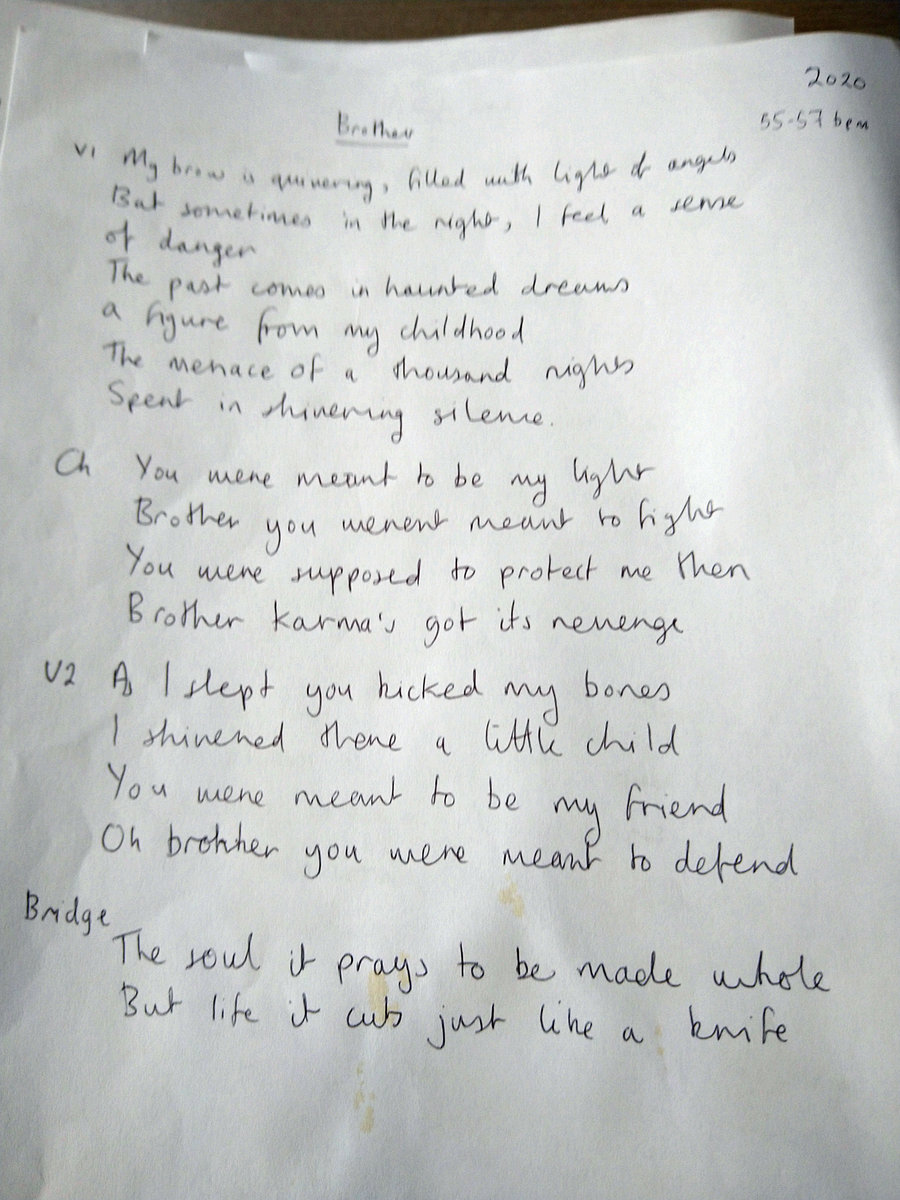 2020
Brother
55-57 bpm
V1 My brow is quivering, filled with light of angels
But sometimes in the night, I feel a sense
of danger
The past comes in haunted dreams
a figure from my childhood
The menace of a thousand nights
Spent in shivering silence.
Ch You were meant to be my light
Brother you werent meant to fight
You were supposed to protect me then
Brother karma's got its revenge
V2 As I slept you kicked my bones
I shivered there a little child
You were meant to be my friend
Oh brother you were meant to defend
Bridge
The soul it prays to be made whole
But life it cuts just like a knife